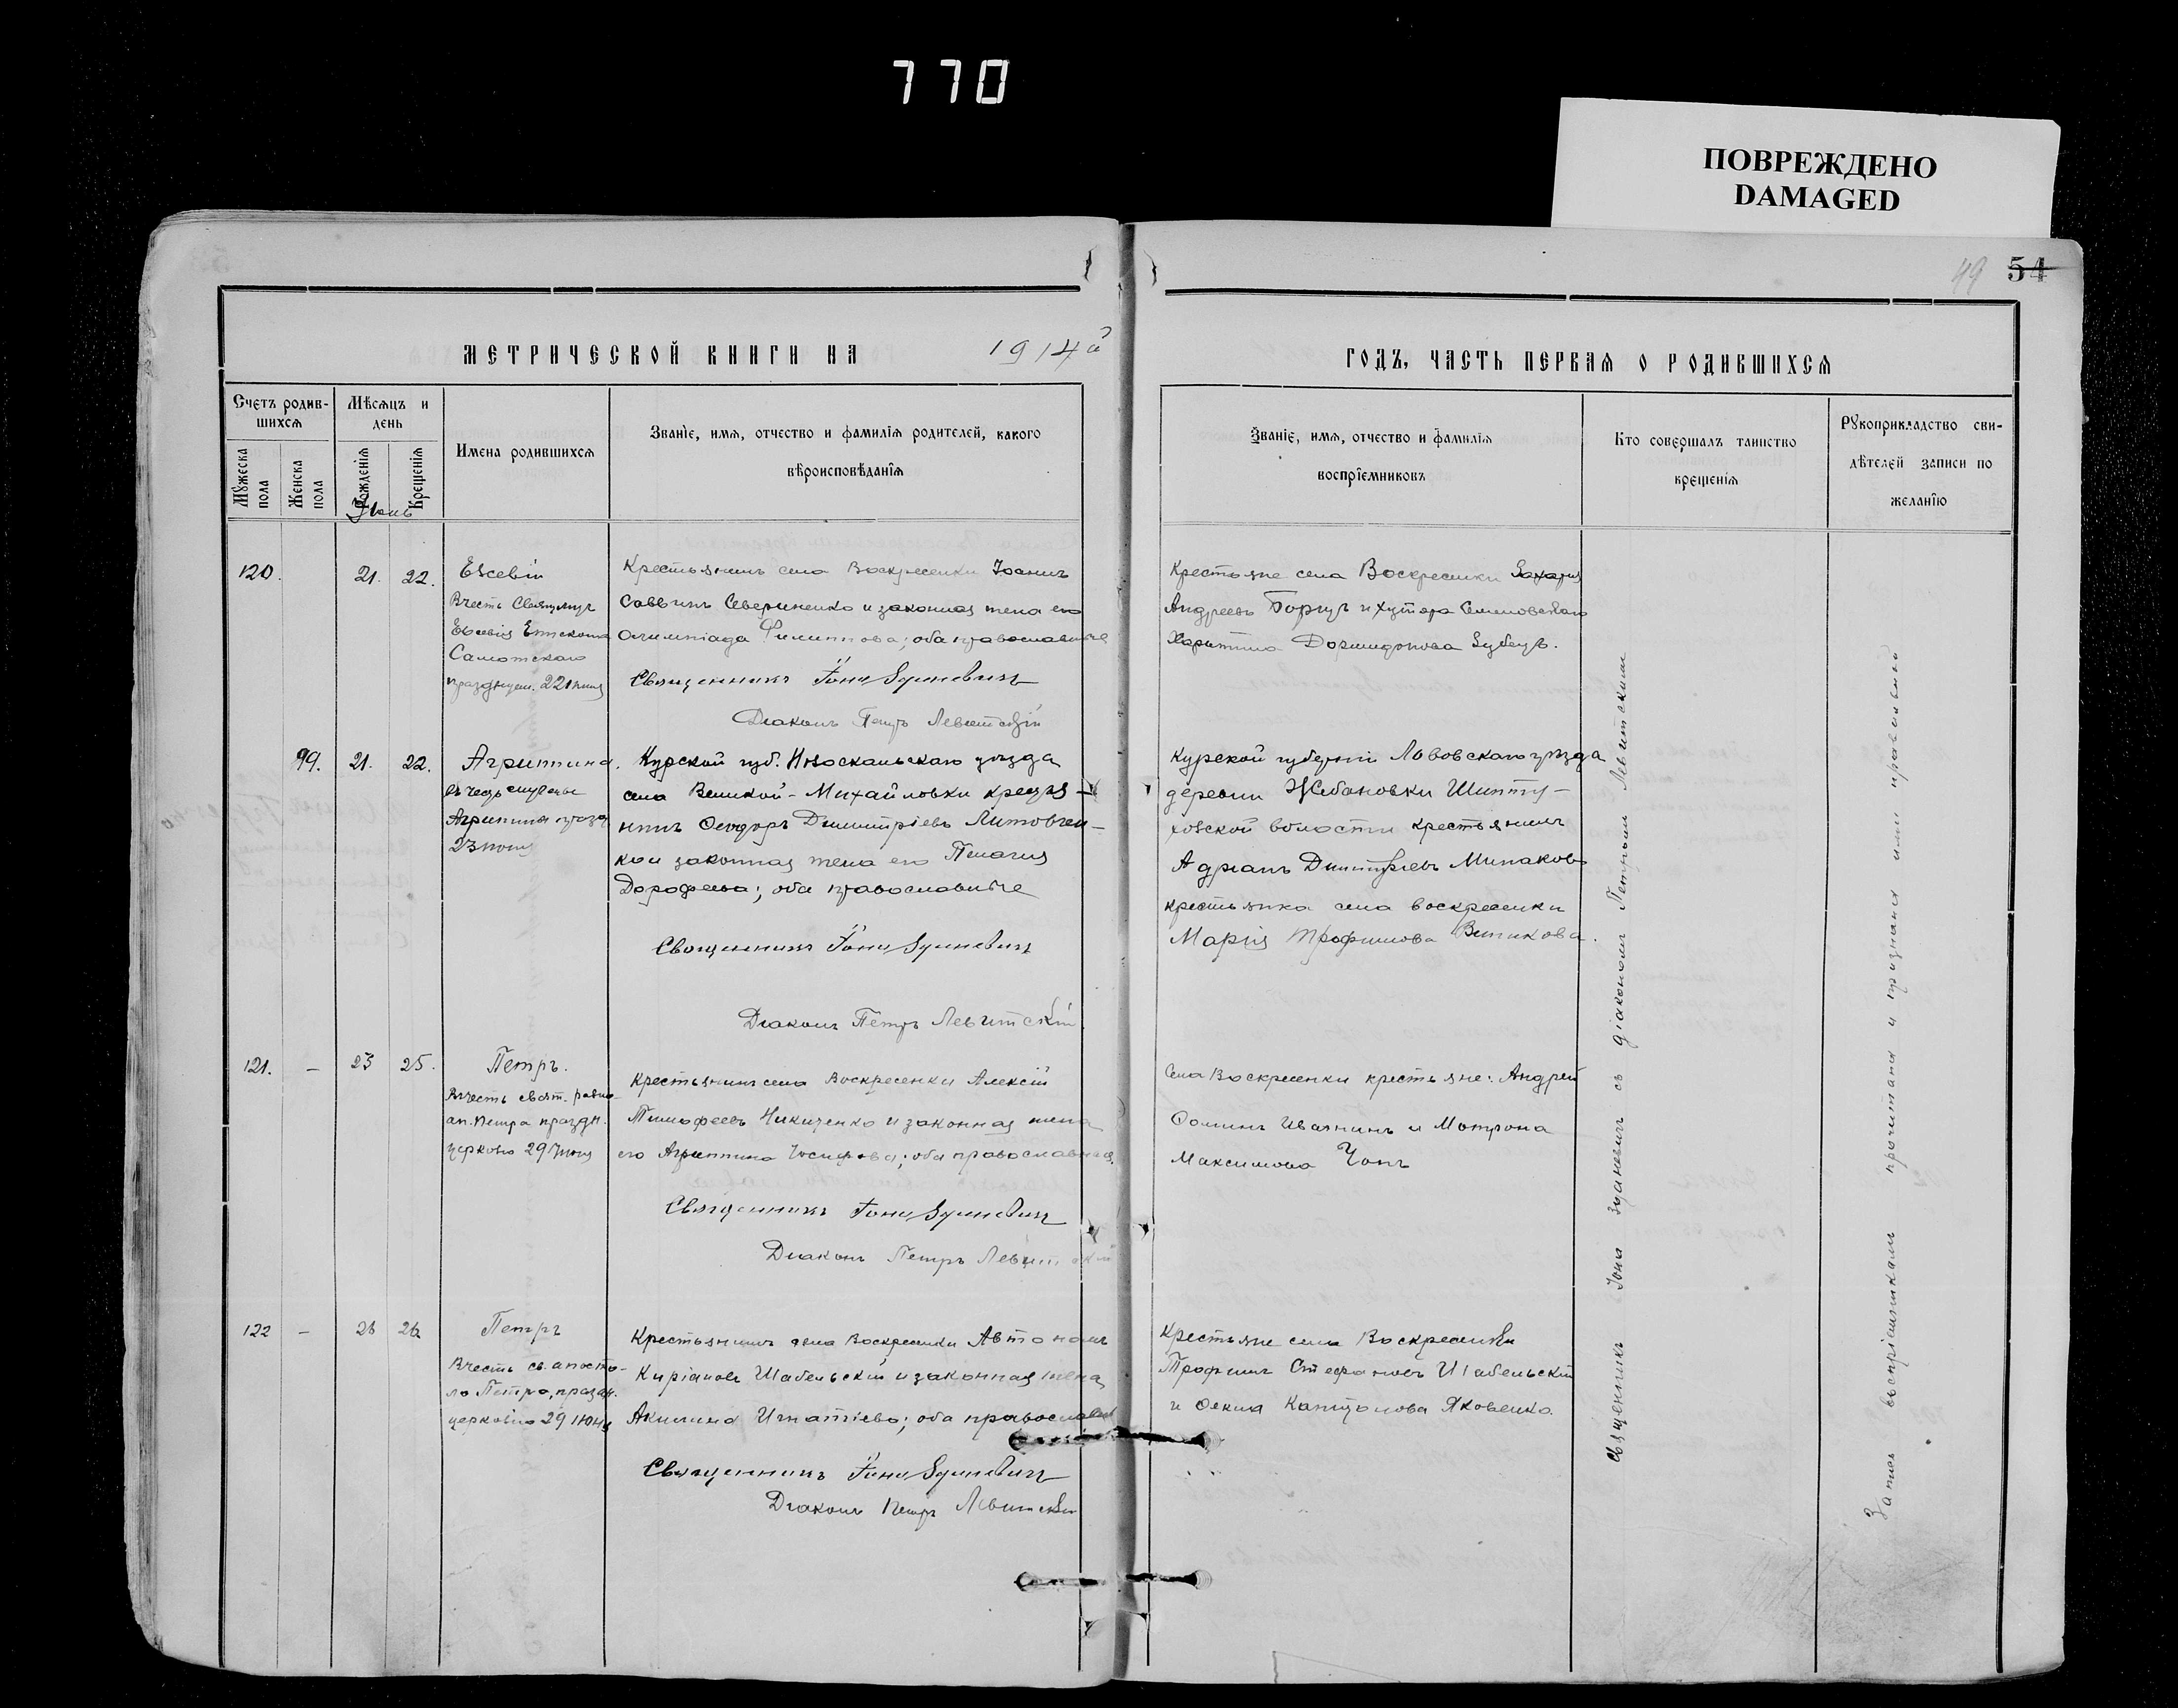 770
ПОВРЕЖДЕНО
DAMAGED
49 54
МЕТРИЧЕСКОЙ КНИГИ НА 1914й
Счетъ родив-
шихся
Мужеска
пола
Женска
пола
Мѣсяцъ и
день
Рожденія
Крещенія
Имена родившихся
Званіе, имя, отчество и фамилія родителей, какого
вѣроисповѣданія
Іюнь
120. 21. 22. Евсевій
Вчесть Священмуч
Евсевія Епископа
Самотскаго
празднуем. 22 іюня
Крестьянинъ села Воскресенки Іоаннъ
Саввинъ Севериненко и законная жена его
Олимпіада Филиппова; оба православные
Священникъ Іона Зданевичъ
Діаконъ Петръ Левитскій
99. 21. 22. Агрипина.
Агрипина празд
23 іюня
Курской губ. Новоскольскаго уѣзда
села Великой-Михайловки крестья-
нинъ Ѳеодоръ Димитріевъ Литовчен-
ко и законная жена его Пелагия
Дорофеева; оба православные
Священникъ Іона Зданевичъ
Діаконъ Петръ Левитскій
121. – 23 25. Петръ.
Вчесть свят. равно-
ап. Петра праздн.
церковію 29 Іюня
Крестьянинъ села Воскресенки Алексій
Тимофеевъ Никиченко и законная жена
его Агрипина Іосифова; оба православные.
Священникъ Іона Зданевичъ
Діаконъ Петръ Левитскій
122 – 26 26 Петръ
Вчесть св. апосто-
ла Петра, празд.
церковію 29 июня
Крестьянинъ села Воскресенки Автономъ
Киріановъ Шабельскій и законная жена
Акилина Игнатіева; оба православные
Священникъ Іона Зданевичъ
Діаконъ Петръ Левитскій
ГОДЪ, ЧАСТЬ ПЕРВАЯ О РОДИВШИХСЯ
Званіе, имя, отчество и фамилія
воспріемниковъ
Кто совершалъ таинство
крещенія
Рукоприкладство сви-
дѣтелей записи по
желанію
Крестьяне села Воскресенки Захарія
Андреевъ и хутора Семеновскаго
Харитина Дормидонова Зубецъ.
Курской губерніи Льговскаго уѣзда
деревни
волости крестьянинъ
Адріанъ Димитріевъ Минаковъ
крестьянка села Воскресенки
Марія Трофимова Витикова.
Села Воскресенки крестьяне: Андрей
Ѳоминъ Иванинъ и Матрона
Максимова Чопъ
Крестьяне села Воскресенки
Трофимъ Стефановъ Шабельскій
и Ѳекла Капитонова Яковенко.
Священникъ Іона Зданевичъ съ діакономъ Петромъ Левитскимъ
Запись воспріемникамъ прочитана и признана ими правильной